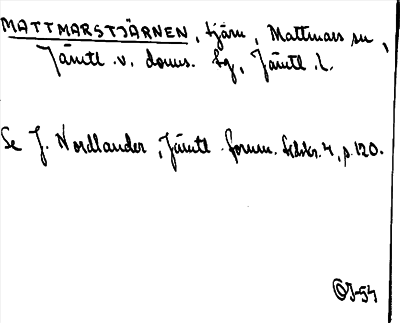 MATTMARSTJÄRNEN, tjärn, Mattmars sn,
Jämtl. v. doms. tg, Jämtl. l.
Se J. Nordlander, Jämtl. fornm. tidskr. 4, p. 120.